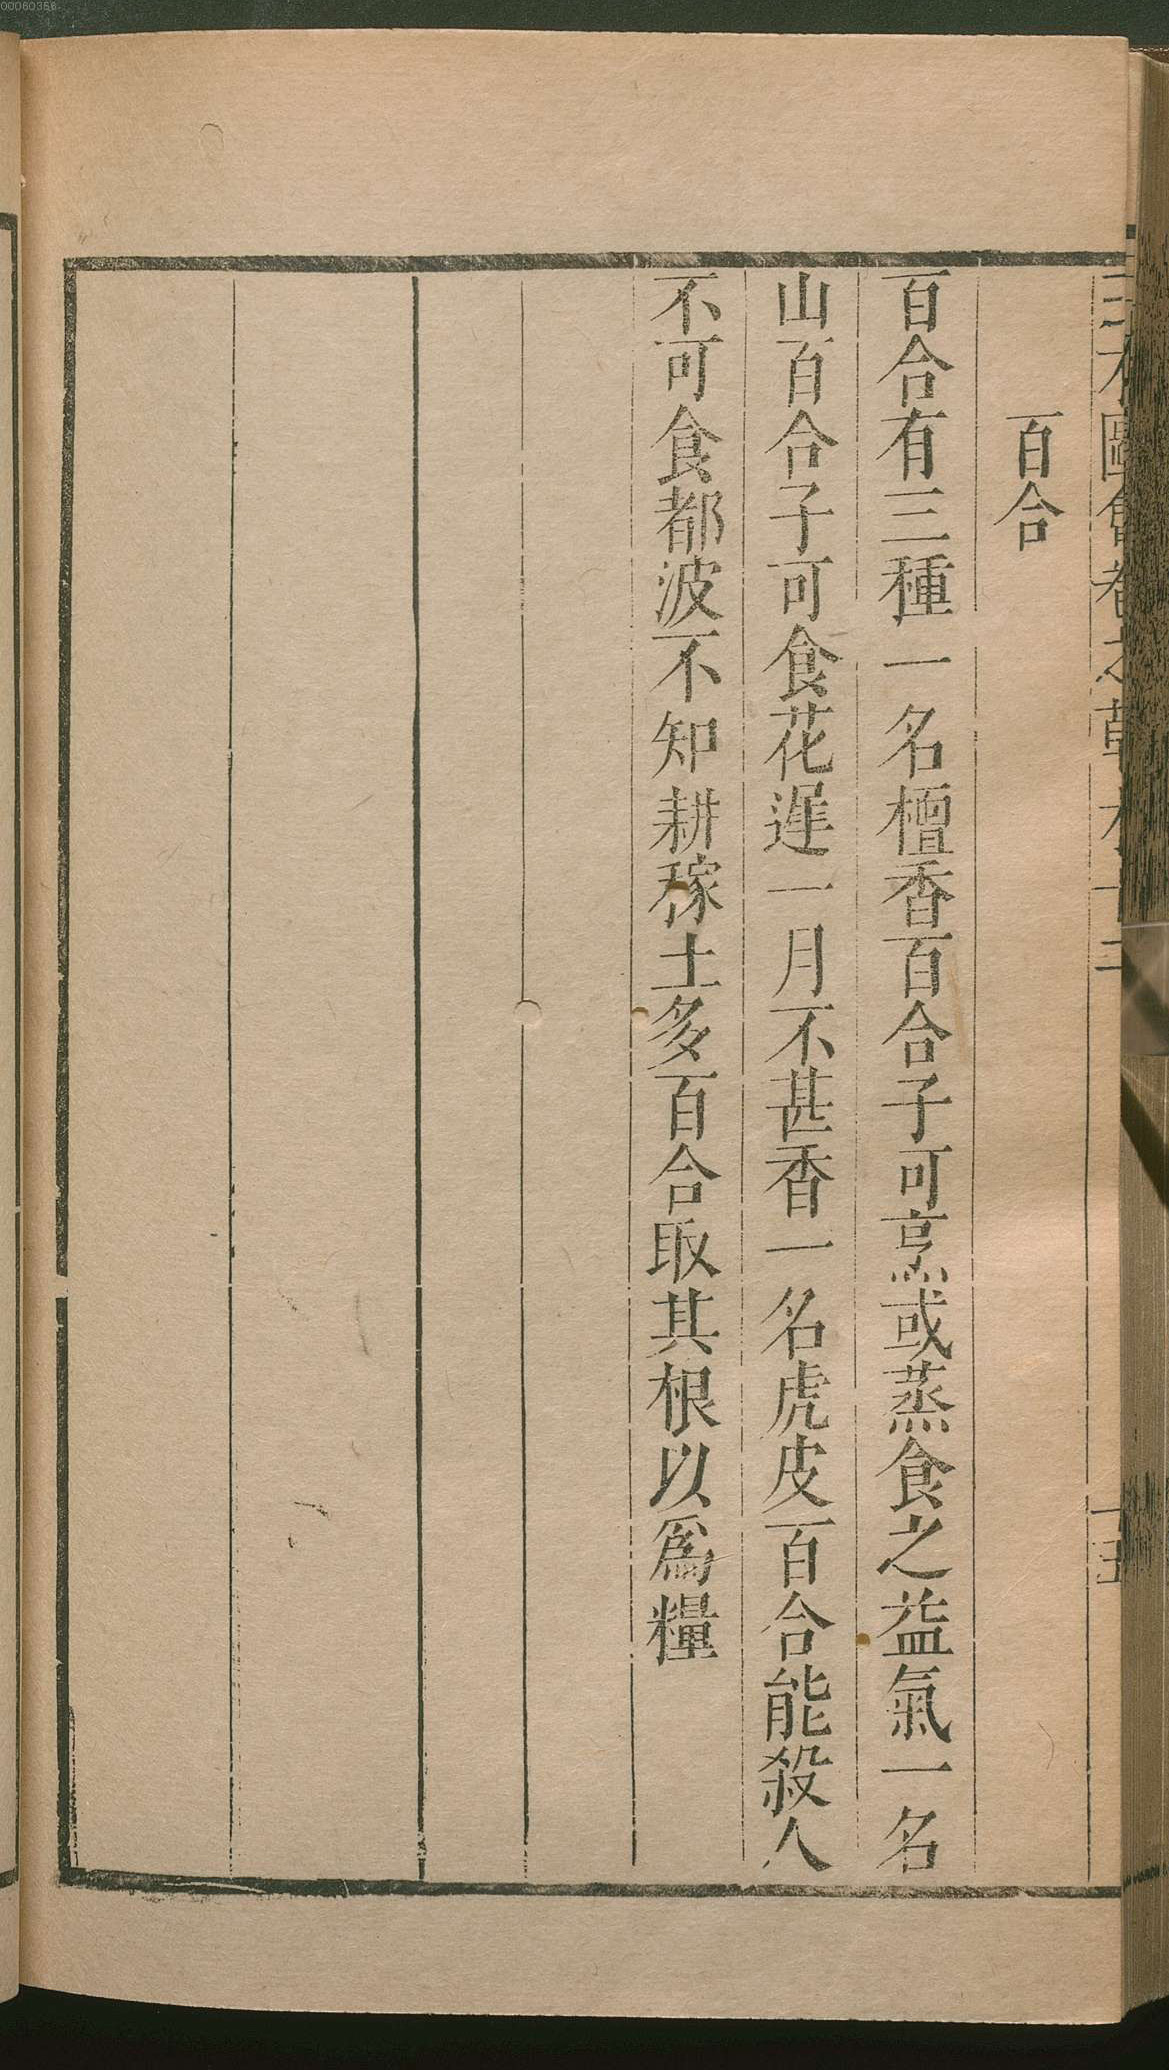 00060356
百合
百合有三種一名檀香百合子可烹或蒸食之益氣一名
山百合子可食花遅一月不甚香一名虎皮百合能殺人
不可食都波不知耕稼土多百合取其根以爲糧